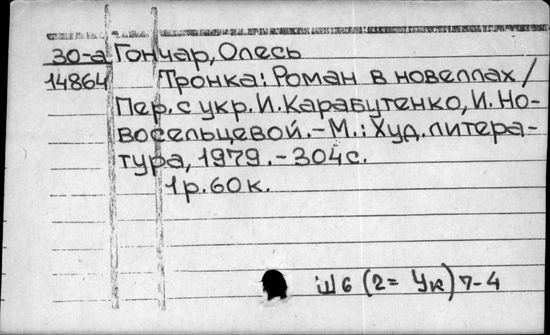 30-а Гончар, Олесь
14864 Тронка: Роман в новеллах /
Пер. с укр. И. Карабутенко, И. Но-
восельцевой. - М.: Худ. литера-
тура, 1979. - 304 с.
1 р. 60 к.
Ш 6 (2 = Ук) 7-4